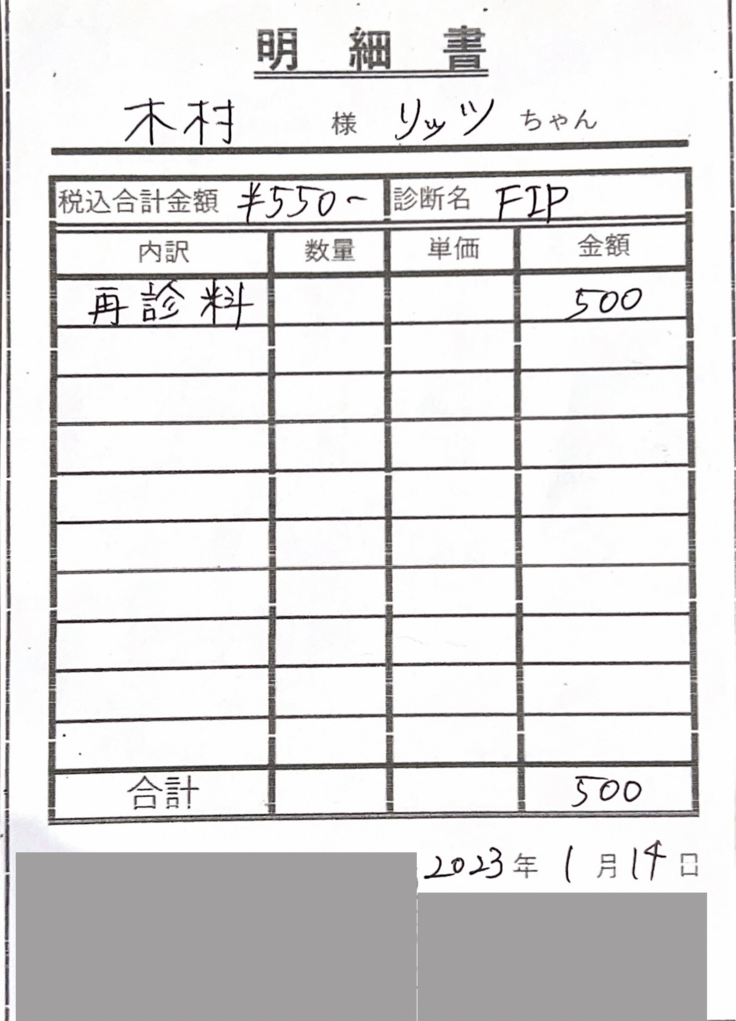 明細書
木村 様 リッツ ちゃん
税込合計金額 ¥550- 診断名 FIP
内訳 数量 単価 金額
再診料 500
合計 500
2023年 1月14日